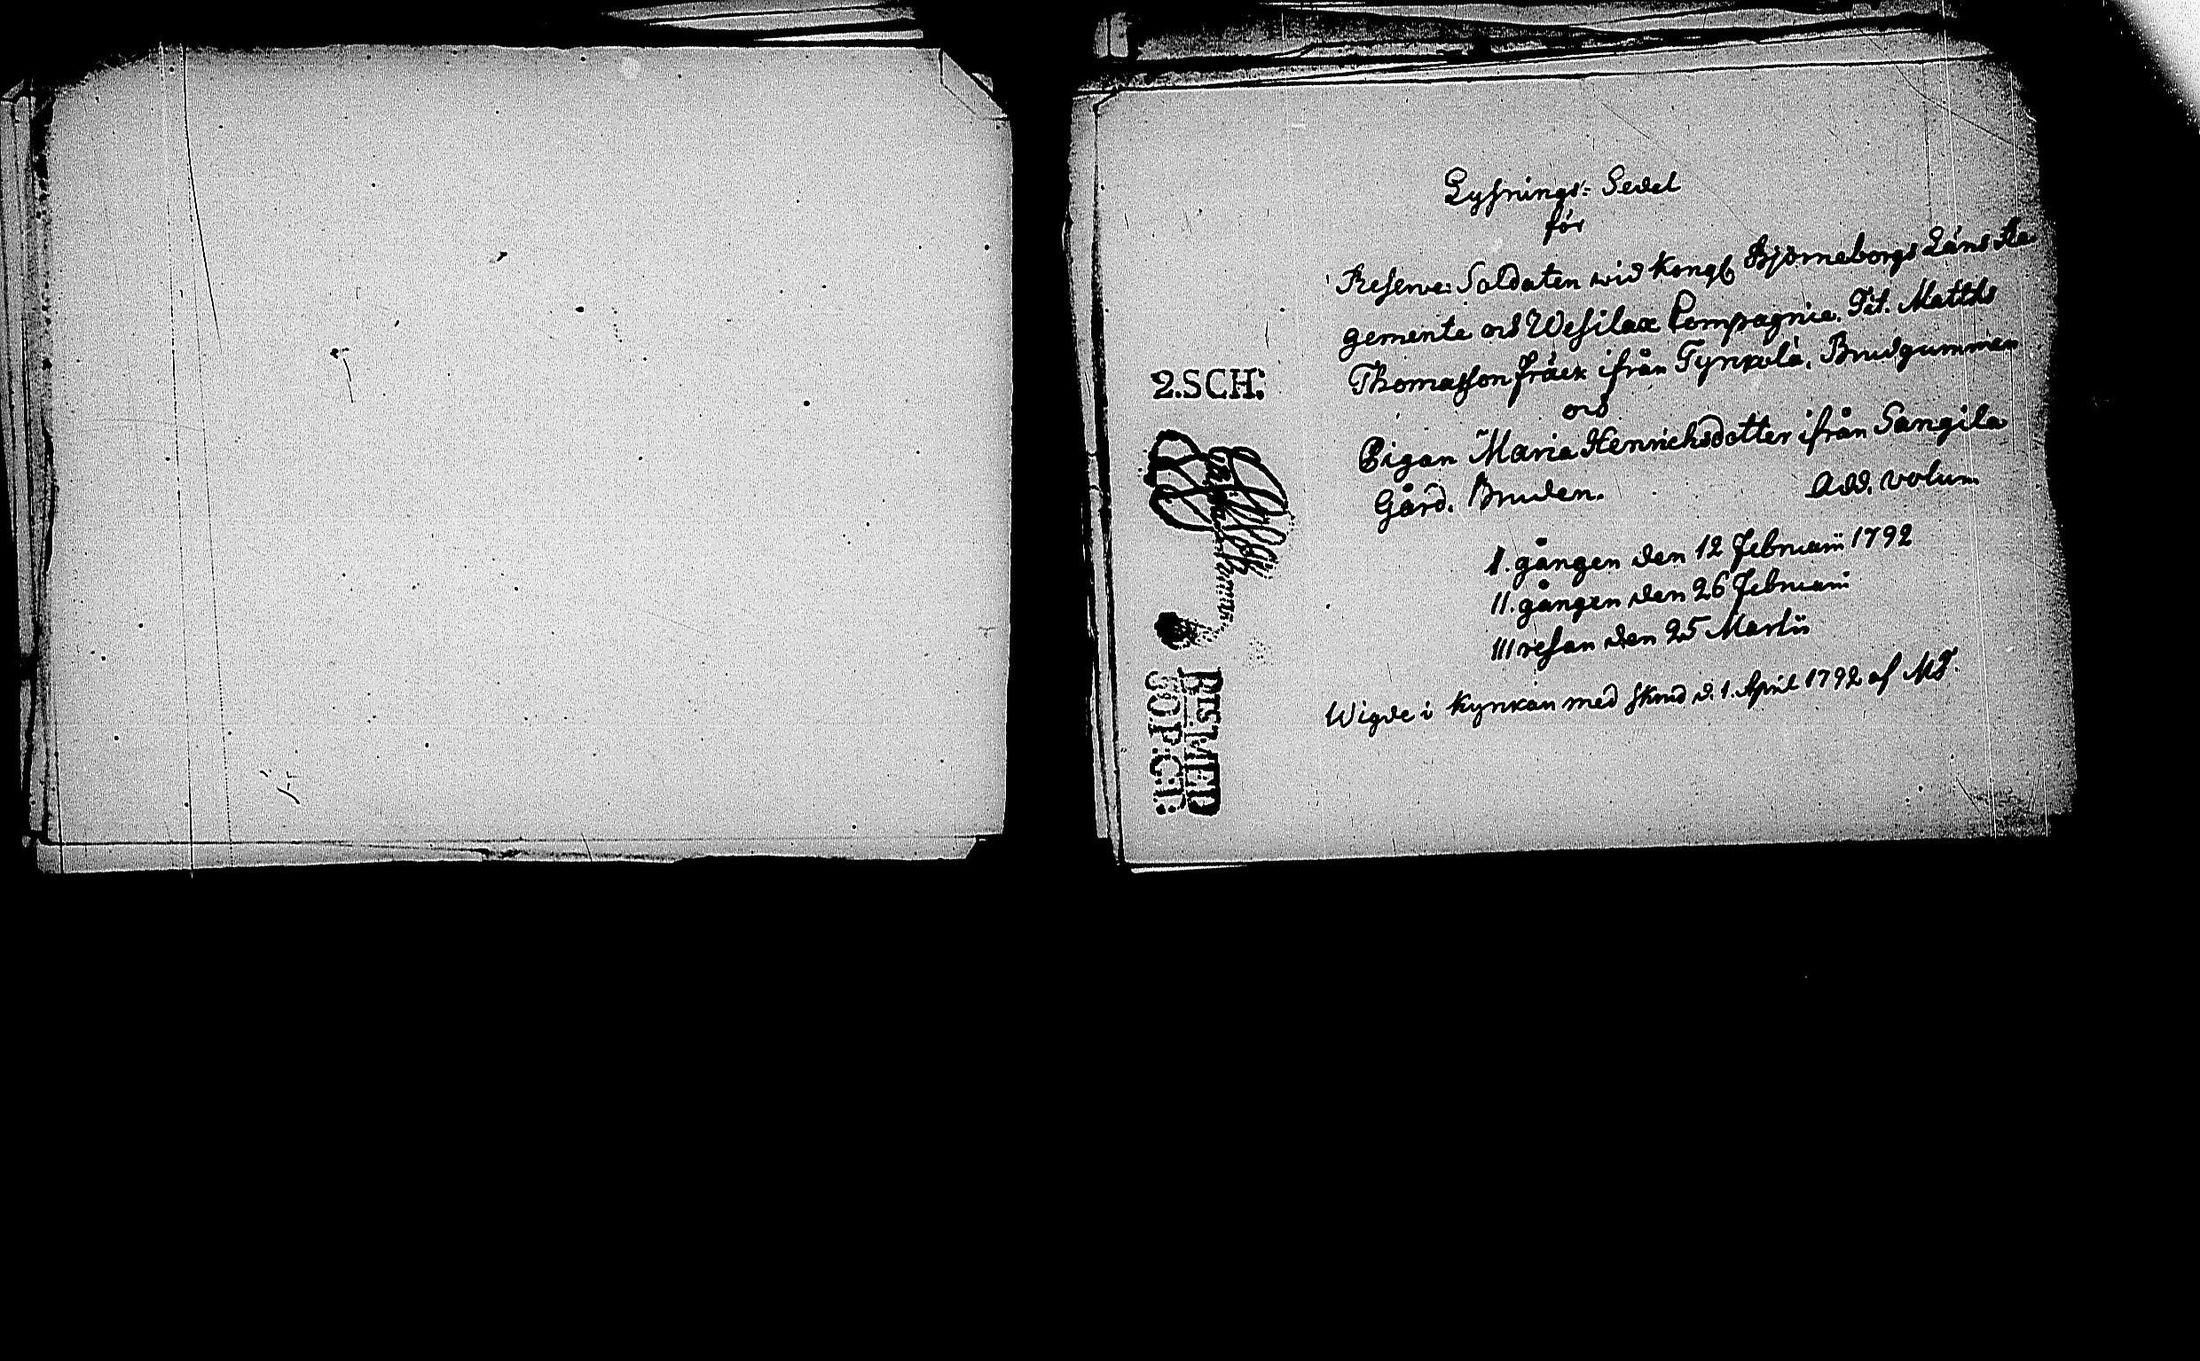 Lysnings: Sedel
för
Reserve: Soldaten wid Kongl Björneborgs Läns Re
gemente och Wesilax Compagnie. Tit. Matths
Thomasson fräck ifrån Tynkölä. Brudgummen
och
Pigan Maria Henrichsdotter ifrån Sangila
Gård. Bruden. Add. volum
I. gången den 12 Februarii 1792
II. gången den 26 Februarii
III resan den 25 Martii
Wigde i Kyrkan med skrud d. 1. April 1792 af MT.
2.SCH: